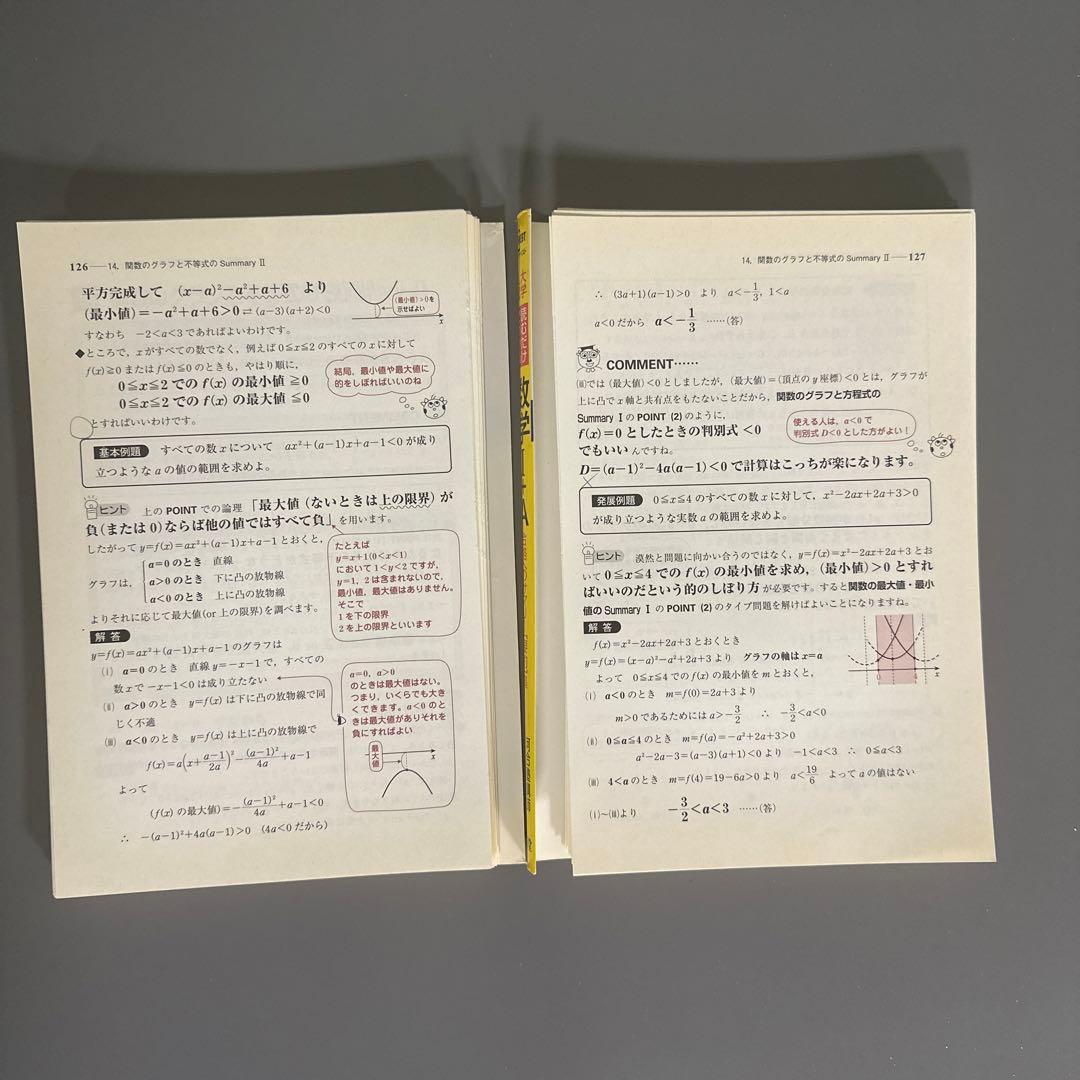 126――14. 関数のグラフと不等式の Summary Ⅱ
平方完成して (x−a)²−a²+a+6 より
(最小値)=−a²+a+6>0 ⇄ (a−3)(a+2)<0
(最小値)>0を
示せばよい
x
すなわち −2<a<3 であればよいわけです。
◆ところで，xがすべての数でなく，例えば 0≦x≦2 のすべての x に対して
f(x)≧0 または f(x)≦0 のときも，やはり順に，
0≦x≦2 での f(x) の最小値 ≧0
0≦x≦2 での f(x) の最大値 ≦0
結局，最小値や最大値に
的をしぼればいいのね
とすればいいわけです。
基本例題 すべての数 x について ax²+(a−1)x+a−1<0 が成り
立つような a の値の範囲を求めよ。
ヒント 上の POINT での論理 「最大値 (ないときは上の限界) が
負(または 0)ならば他の値ではすべて負」を用います。
したがって y=f(x)=ax²+(a−1)x+a−1 とおくと，
グラフは，
a=0 のとき 直線
a>0 のとき 下に凸の放物線
a<0 のとき 上に凸の放物線
よりそれに応じて最大値(or 上の限界)を調べます。
たとえば
y=x+1(0<x<1)
において1<y<2ですが，
y=1, 2は含まれないので，
最小値，最大値はありません。
そこで
1を下の限界
2を上の限界といいます
解答
y=f(x)=ax²+(a−1)x+a−1 のグラフは
(ⅰ) a=0 のとき 直線 y=−x−1 で，すべての
数 x で −x−1<0 は成り立たない
(ⅱ) a>0 のとき y=f(x) は下に凸の放物線で同
じく不適
(ⅲ) a<0 のとき y=f(x) は上に凸の放物線で
f(x)=a(x+(a−1)/2a)²−(a−1)²/4a+a−1
よって
(f(x) の最大値)=−(a−1)²/4a+a−1<0
∴ −(a−1)²+4a(a−1)>0 (4a<0 だから)
a=0, a>0
のときは最大値はない。
つまり，いくらでも大き
くできます。a<0 のと
きは最大値がありそれを
負にすればよい
最大値
x
大学
読むだけ
数学
14. 関数のグラフと不等式の Summary Ⅱ――127
∴ (3a+1)(a−1)>0 より a<−1/3, 1<a
a<0 だから a<−1/3 ……(答)
COMMENT……
(ⅲ)では (最大値)<0 としましたが，(最大値)=(頂点の y 座標)<0 とは，グラフが
上に凸で x 軸と共有点をもたないことだから，関数のグラフと方程式の
Summary Ⅰ の POINT (2) のように，
f(x)=0 としたときの判別式 <0
でもいいんですね。
使える人は，a<0 で
判別式 D<0 とした方がよい！
D=(a−1)²−4a(a−1)<0 で計算はこっちが楽になります。
発展例題 0≦x≦4 のすべての数 x に対して，x²−2ax+2a+3>0
が成り立つような実数 a の範囲を求めよ。
ヒント 漠然と問題に向かい合うのではなく，y=f(x)=x²−2ax+2a+3 とお
いて 0≦x≦4 での f(x) の最小値を求め，(最小値)>0 とすれ
ばいいのだという的のしぼり方が必要です。すると関数の最大値・最小
値の Summary Ⅰ の POINT (2) のタイプ問題を解けばよいことになりますね。
解答
f(x)=x²−2ax+2a+3 とおくとき
y=f(x)=(x−a)²−a²+2a+3 より グラフの軸は x=a
よって 0≦x≦4 での f(x) の最小値を m とおくと，
x
(ⅰ) a<0 のとき m=f(0)=2a+3 より
m>0 であるためには a>−3/2 ∴ −3/2<a<0
(ⅱ) 0≦a≦4 のとき m=f(a)=−a²+2a+3>0
a²−2a−3=(a−3)(a+1)<0 より −1<a<3 ∴ 0≦a<3
(ⅲ) 4<a のとき m=f(4)=19−6a>0 より a<19/6 よって a の値はない
(ⅰ)〜(ⅲ)より −3/2<a<3 ……(答)